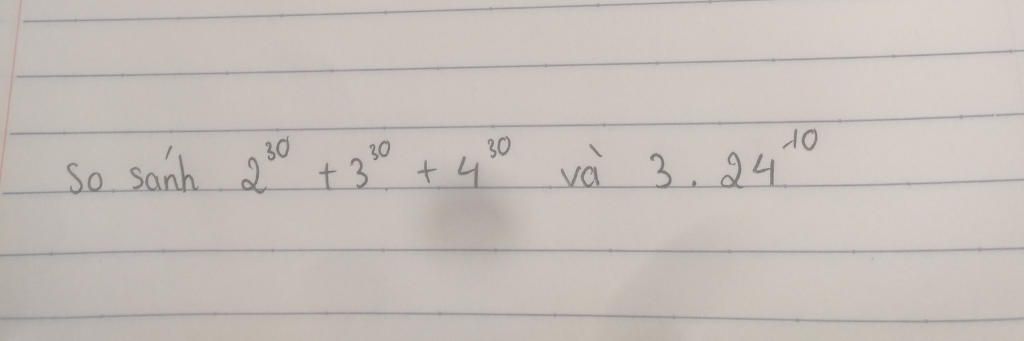 So sánh 2³⁰ + 3³⁰ + 4³⁰ và 3 . 24¹⁰